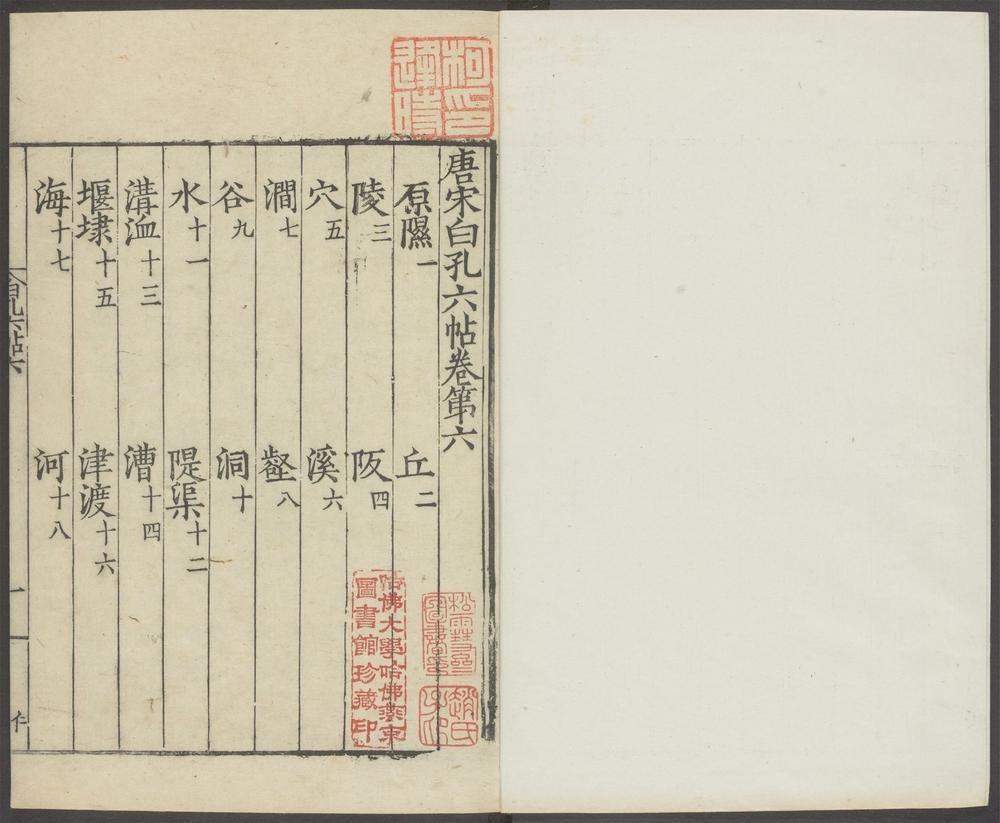 唐宋白孔六帖卷第六
原隰一 丘二
陵三 阪四
穴五 溪六
澗七 壑八
谷九 洞十
水十一 隄渠十二
溝洫十三 漕十四
堰埭十五 津渡十六
海十七 河十八
白孔六帖六
一
哈佛大學哈佛燕京
圖書館珍藏印
趙氏
子印